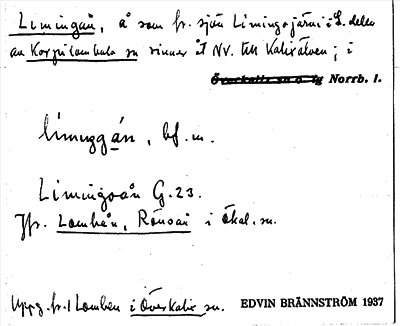 Limingån, å som fr. sjön Limingojärvi i S. delen
av Korpilombolo sn rinner åt NV. till Kalixälven; i
Överkalix sn o. tg Norrb. l.
limιŋgån, bf. m.
Limingoån G.23.
Jfr. Lombån, Rönoån i Ökal. sn.
Uppg. fr. / Lomben i Överkalix sn.
EDVIN BRÄNNSTRÖM 1937